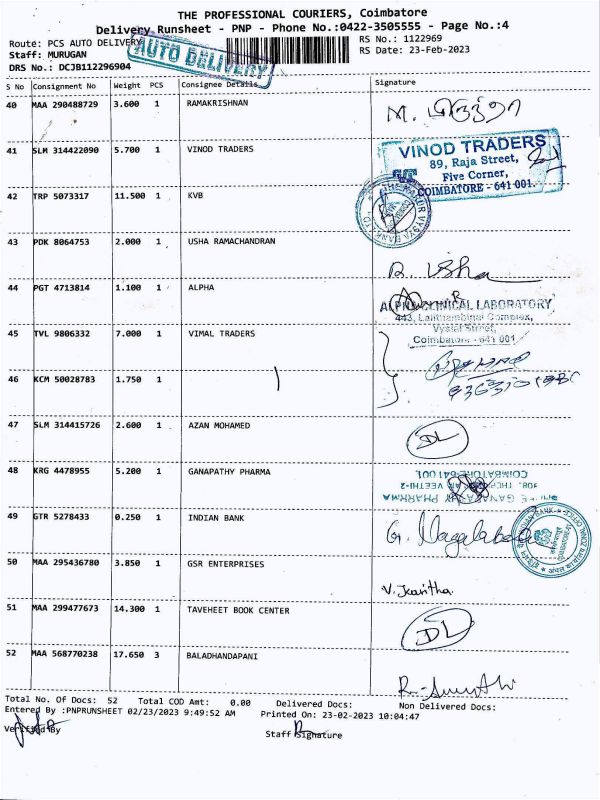 THE PROFESSIONAL COURIERS, Coimbatore
Delivery Runsheet - PNP - Phone No.:0422-3505555 - Page No.:4
Route: PCS AUTO DELIVERY
RS No.: 1122969
Staff: MURUGAN
RS Date: 23-Feb-2023
DRS No.: DCJB112296904
AUTO DELIVERY
S No Consignment No Weight PCS Consignee Details Signature
40 MAA 290488729 3.600 1 RAMAKRISHNAN
41 SLM 314422090 5.700 1 VINOD TRADERS
VINOD TRADERS
89, Raja Street,
Five Corner,
COIMBATORE - 641 001.
42 TRP 5073317 11.500 1 KVB
43 PDK 8064753 2.000 1 USHA RAMACHANDRAN
R. Usha
44 PGT 4713814 1.100 1 ALPHA
ALPHA CLINICAL LABORATORY
Complex,
Street,
Coimbatore - 641 001
45 TVL 9806332 7.000 1 VIMAL TRADERS
46 KCM 50028783 1.750 1
47 SLM 314415726 2.600 1 AZAN MOHAMED
DL
48 KRG 4478955 5.200 1 GANAPATHY PHARMA
COIMBATORE-641 001
49 GTR 5278433 0.250 1 INDIAN BANK
50 MAA 295436780 3.850 1 GSR ENTERPRISES
51 MAA 299477673 14.300 1 TAVEHEET BOOK CENTER
DL
52 MAA 568770238 17.650 3 BALADHANDAPANI
Total No. Of Docs: 52 Total COD Amt: 0.00 Delivered Docs: Non Delivered Docs:
Entered By :PNPRUNSHEET 02/23/2023 9:49:52 AM Printed On: 23-02-2023 10:04:47
Verified By
Staff Signature